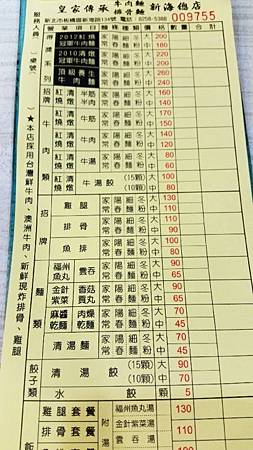 皇家傳承 牛肉麵 排骨麵 新海總店
新北市板橋區新海路134號 電話:8258-5388
009755
服務人員: 桌號:
營業項目 麵種類 規格 價格 數量 合計
得獎系列
2012紅燒冠軍牛肉麵 家常 陽春 細麵 冬粉 大 200 中 180
2010清燉冠軍牛肉麵 家常 陽春 細麵 冬粉 大 200 中 180
頂級養生牛肉麵 家常 陽春 細麵 冬粉 大 260 中 240
招牌牛肉麵
紅燒 清燉 半筋半肉 家常 陽春 細麵 冬粉 大 160 中 140
紅燒 清燉 牛肉 家常 陽春 細麵 冬粉 大 140 中 120
紅燒 清燉 牛湯 家常 陽春 細麵 冬粉 大 80 中 60
紅燒 清燉 牛湯餃 (15顆) 大 110 (10顆) 中 80
招牌麵類
雞腿 家常 陽春 細麵 冬粉 大 130 中 110
排骨 家常 陽春 細麵 冬粉 大 110 中 90
魚排 家常 陽春 細麵 冬粉 大 110 中 90
福州魚丸 雲吞 家常 陽春 細麵 冬粉 大 90 中 65
金針紫菜 香菇貢丸 家常 陽春 細麵 冬粉 大 90 中 65
麻醬乾麵 肉燥乾麵 家常 陽春 細麵 冬粉 大 70 中 45
清湯麵 家常 陽春 細麵 冬粉 大 70 中 45
餃子類
清湯餃 (15顆) 大 90 (10顆) 中 70
水餃 顆 5
飯
雞腿套餐 附湯 福州魚丸湯 130
排骨套餐 金針紫菜湯 110
魚排套餐 雲吞湯 100
★本店採用台灣鮮牛肉、澳洲牛肉、新鮮現炸排骨、雞腿